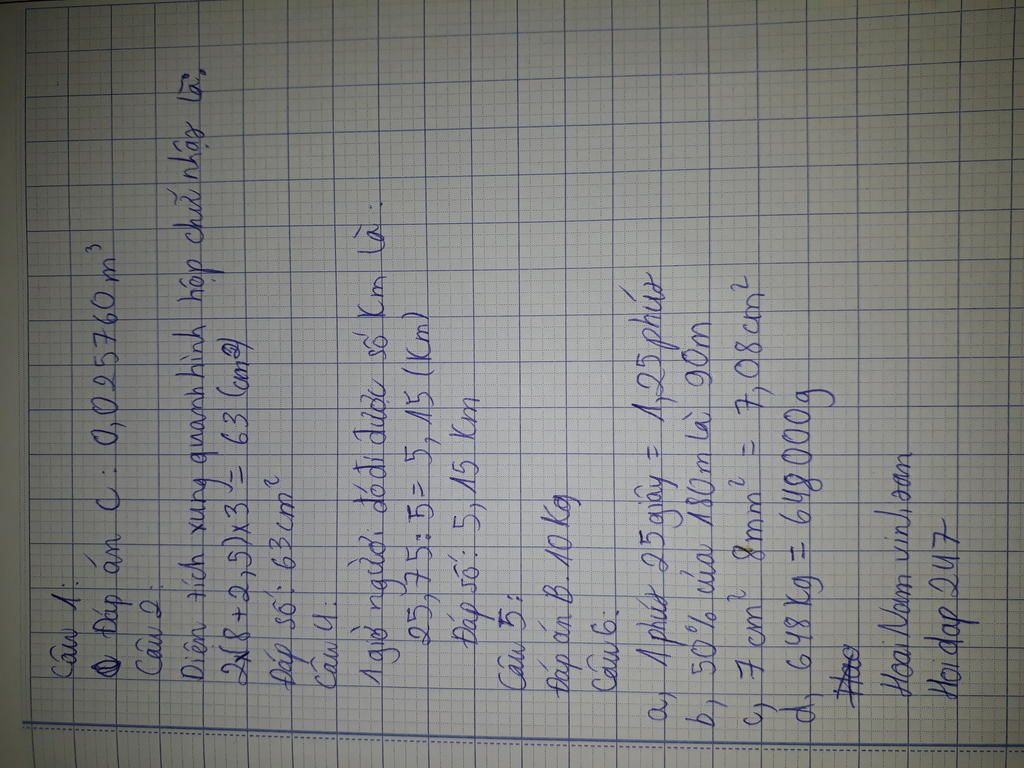 Câu 1:
Đáp án C: 0,025760 m³
Câu 2:
Diện tích xung quanh hình hộp chữ nhật là:
2x(8+2,5)x3 = 63 (cm²)
Đáp số: 63 cm²
Câu 4:
1 giờ người đó đi được số Km là:
25,75:5 = 5,15 (Km)
Đáp số: 5,15 Km
Câu 5:
Đáp án B. 10 Kg
Câu 6:
a, 1 phút 25 giây = 1,25 phút
b, 50% của 180m là 90m
c, 7 cm² 8mm² = 7,08cm²
d, 648 Kg = 648000g
Hoai Nam
Hoidap 247